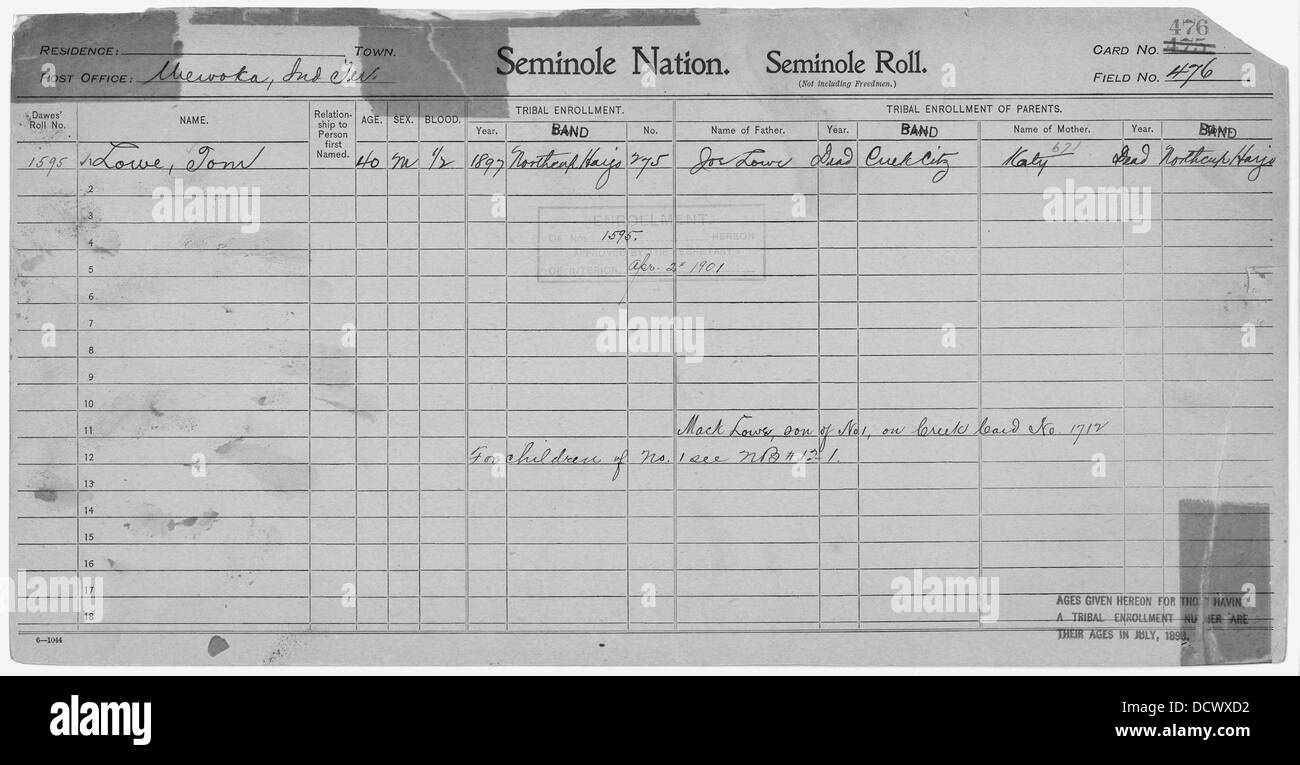 476
RESIDENCE: TOWN. Seminole Nation. Seminole Roll. CARD NO. 475
(Not including Freedmen.)
POST OFFICE: Wewoka, Ind Ter. FIELD NO. 476
TRIBAL ENROLLMENT. TRIBAL ENROLLMENT OF PARENTS.
Dawes' Roll No. NAME. Relationship to Person first Named. AGE. SEX. BLOOD. Year. BAND No. Name of Father. Year. BAND Name of Mother. Year. BAND
1595 1 Lowe, Tom 40 M 1/2 1897 Northcup Harjo 275 Joe Lowe Dead Creek Citz Katy 671 Dead Northcup Harjo
2
3
ENROLLMENT
4 OF NOS. 1595. HEREON
APPROVED BY THE SECRETARY
5 OF INTERIOR Apr. 2" 1901
6
7
8
9
10
11 Mack Lowe, son of No1, on Creek Card No. 1712
12 For children of No. 1 see NB #121.
13
14
15
16
17 AGES GIVEN HEREON FOR THOSE HAVING
18 A TRIBAL ENROLLMENT NUMBER ARE
THEIR AGES IN JULY, 1898.
6—1044
alamy
Image ID: DCWXD2
www.alamy.com